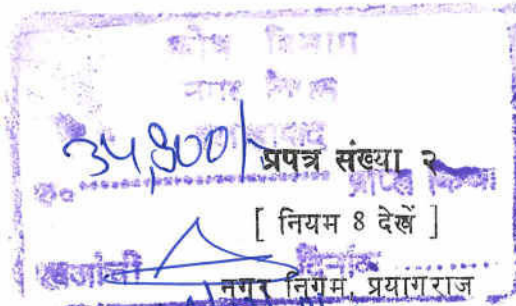 कोष विभाग
नगर निगम
34,800/- प्रपत्र संख्या २
रु० प्राप्त किया
[ नियम 8 देखें ]
खजांची दिनांक
नगर निगम, प्रयागराज